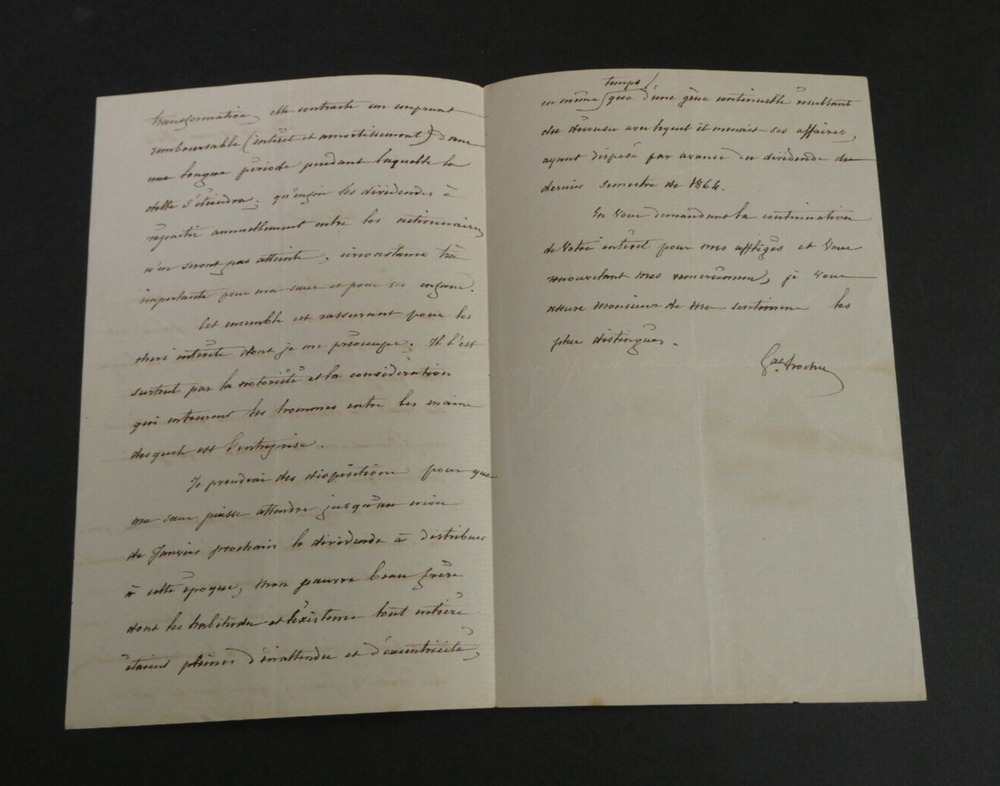 transformation, elle contracte un emprunt
remboursable (intérêt et amortissement) dans
une longue période pendant laquelle la
dette s'éteindra; qu'enfin les dividendes à
répartir annuellement entre les actionnaires
n'en seront pas atteints, circonstance très
importante pour ma sœur et pour ses enfans.
Cet ensemble est rassurant pour les
chers intérêts dont je me préoccupe. Il l'est
surtout par la notoriété et la considération
qui entourent les hommes entre les mains
desquels est l'entreprise.
Je prendrai des dispositions pour que
ma sœur puisse attendre jusqu'au mois
de Janvier prochain le dividende à distribuer
à cette époque, mon pauvre beau frère
dont les habitudes et l'existence tout entière
étaient pleines d'inattendu et d'excentricité,
en même temps que d'une gêne continuelle résultant
du décousu avec lequel il menait ses affaires,
ayant disposé par avance du dividende du
dernier semestre de 1864.
En vous demandant la continuation
de votre intérêt pour mes affligés et vous
renouvelant mes remercimens, je vous
assure Monsieur de mes sentimens les
plus distingués.
Gal Trochu